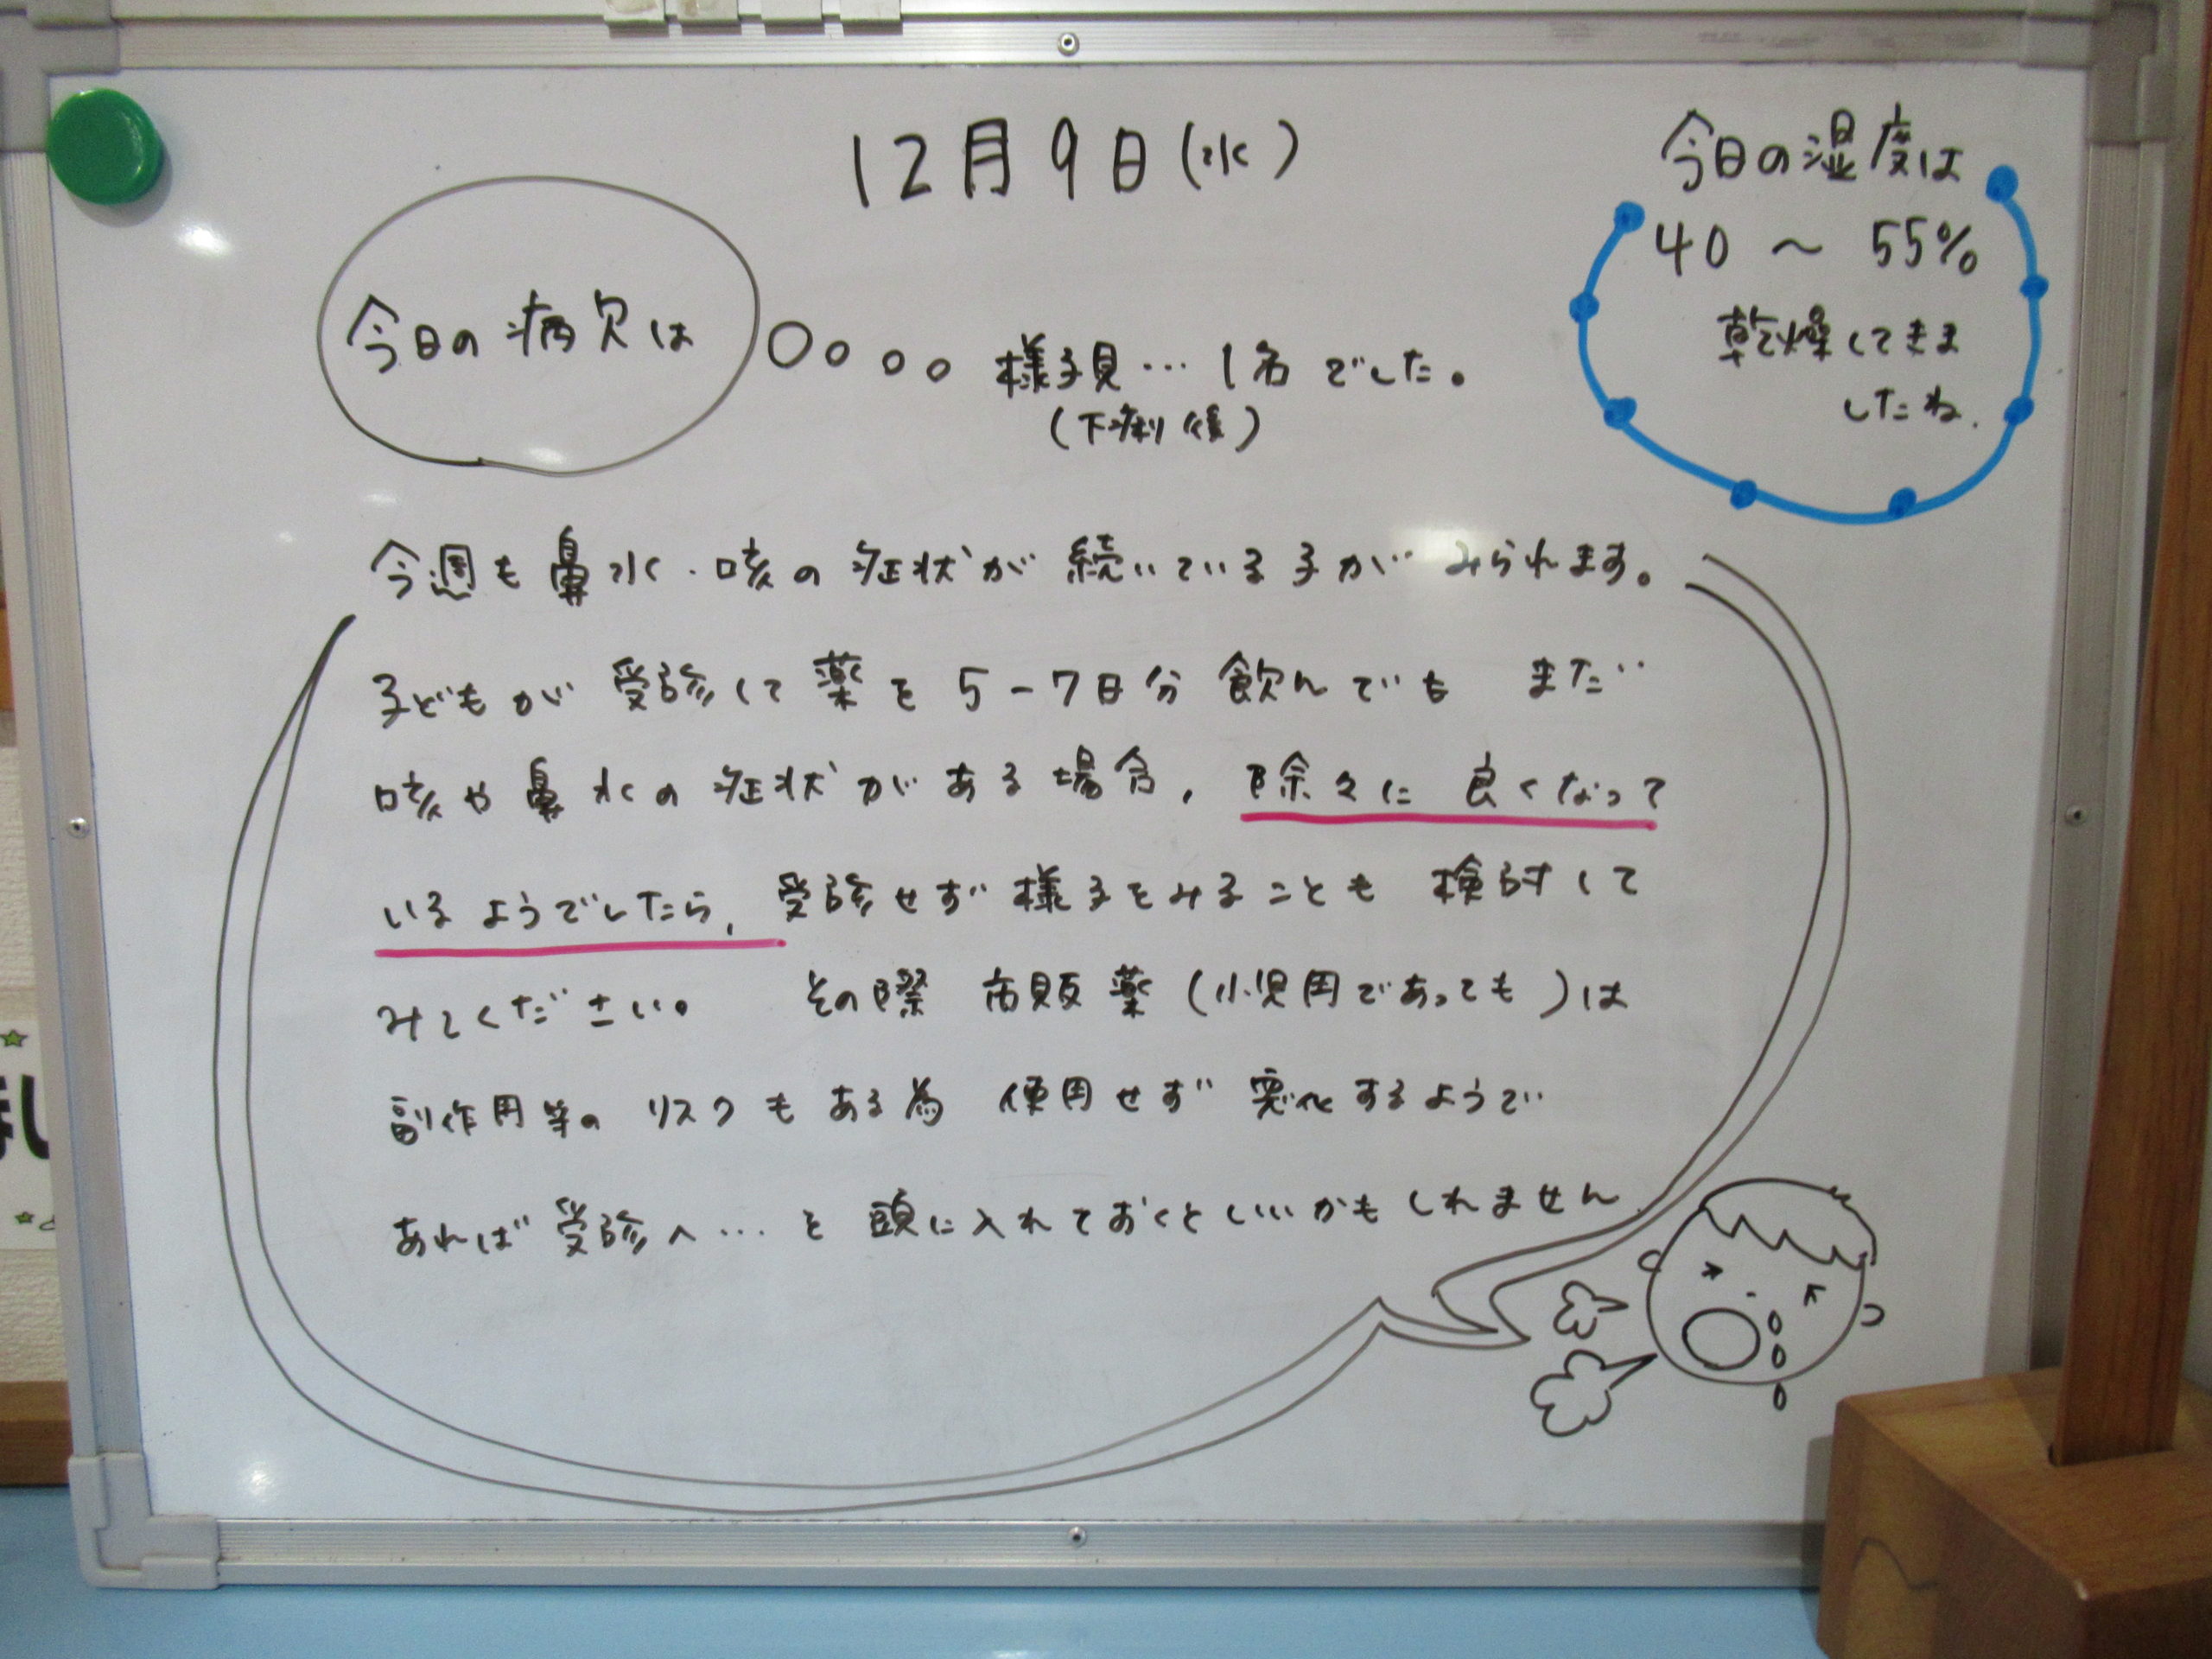 12月9日(水)
今日の湿度は
40 〜 55%
乾燥してきま
したね.
今日の病欠は
様子見…1名でした。
(下痢後)
今週も鼻水・咳の症状が続いている子がみられます。
子どもが受診して薬を5-7日分飲んでもまだ
咳や鼻水の症状がある場合、除々に良くなって
いるようでしたら、受診せず様子をみることも検討して
みてください。その際市販薬(小児用であっても)は
副作用等のリスクもある為使用せず悪化するようで
あれば受診へ…と頭に入れておくといいかもしれません